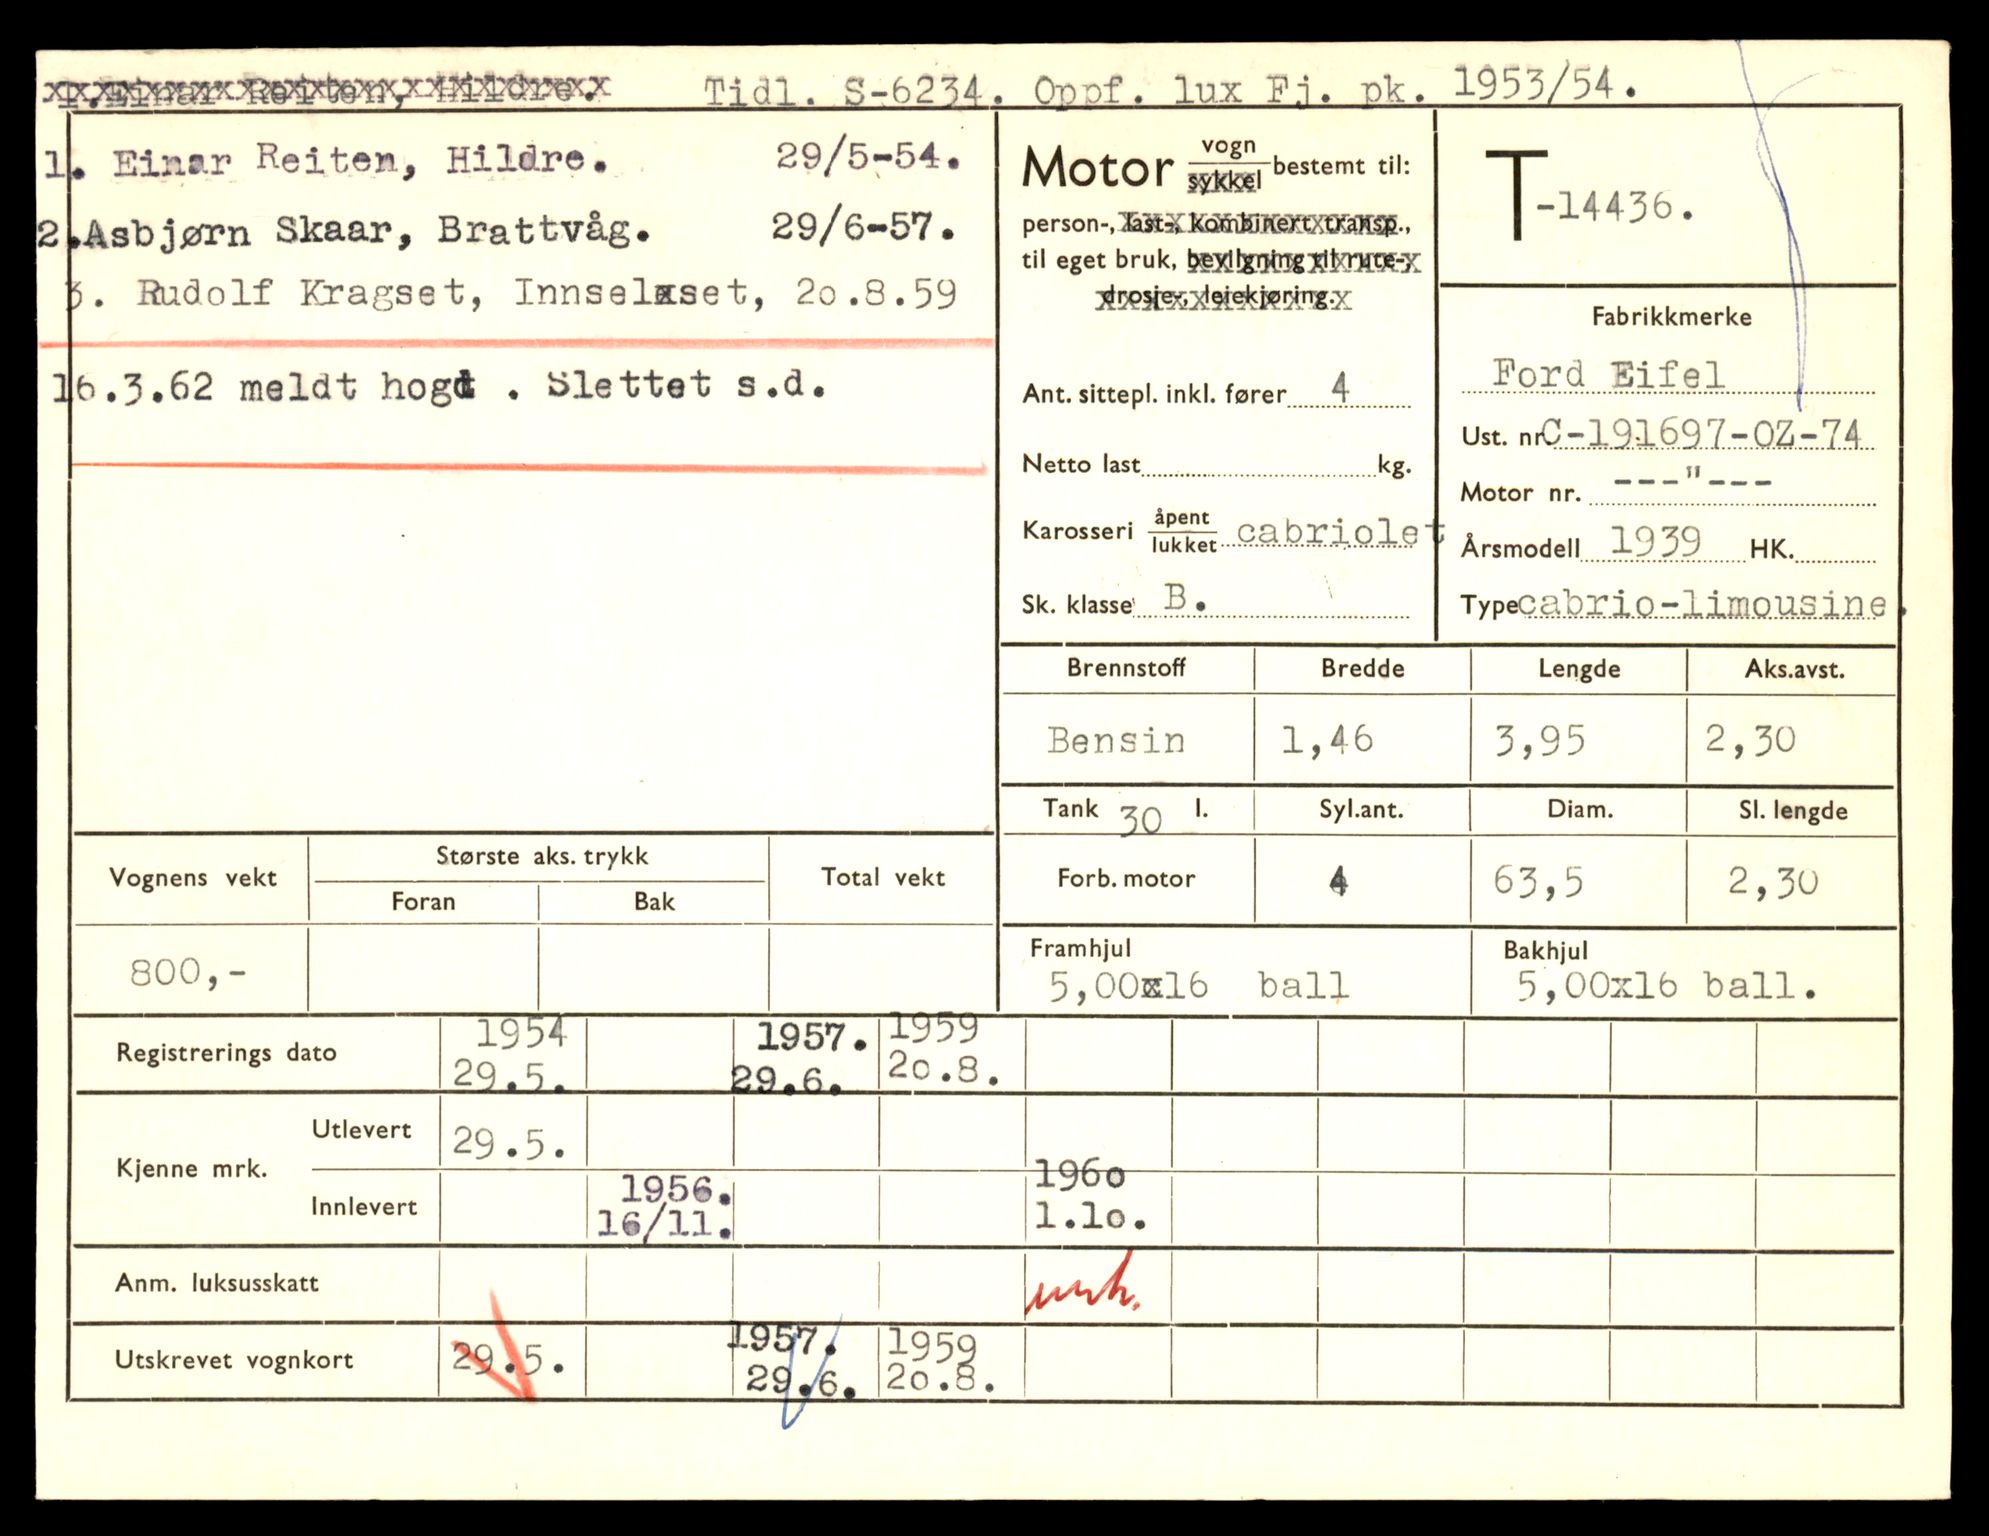 1. Einar Reiten, Hildre. Tidl. S-6234. Oppf. lux Fj. pk. 1953/54.
1. Einar Reiten, Hildre. 29/5-54.
2. Asbjørn Skaar, Brattvåg. 29/6-57.
3. Rudolf Kragset, Innselset, 20.8.59
16.3.62 meldt hogd . Slettet s.d.
Motor vogn sykkel bestemt til:
person-, last-, kombinert transp.,
til eget bruk, bevilgning til rute-,
drosje-, leiekjøring.
Ant. sittepl. inkl. fører 4
Netto last kg.
Karosseri åpent lukket cabriolet
Sk. klasse B.
T-14436.
Fabrikkmerke
Ford Eifel
Ust. nr C-191697-OZ-74
Motor nr. ---"---
Årsmodell 1939 HK.
Type cabrio-limousine.
Brennstoff Bredde Lengde Aks.avst.
Bensin 1,46 3,95 2,30
Tank 30 l. Syl.ant. Diam. Sl. lengde
Forb. motor 4 63,5 2,30
Framhjul Bakhjul
5,00x16 ball 5,00x16 ball.
Vognens vekt Største aks. trykk Total vekt
Foran Bak
800,-
Registrerings dato 1954 1957. 1959
29.5. 29.6. 20.8.
Kjenne mrk.
Utlevert 29.5.
Innlevert 1956. 1960
16/11. 1.10.
Anm. luksusskatt
Utskrevet vognkort 1957. 1959
29.5. 29.6. 20.8.